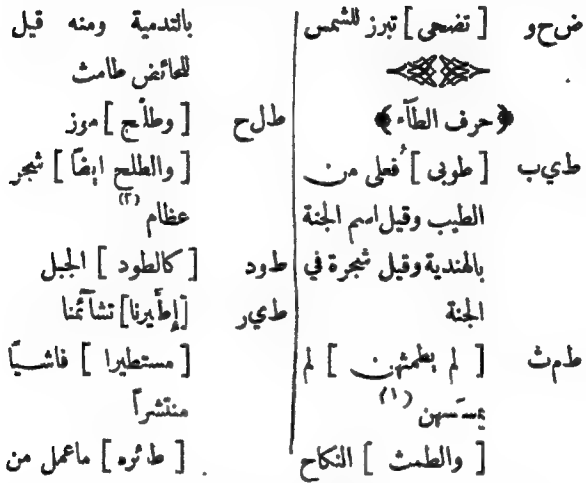 ضحو [ تضحى ] تبرز للشمس
﴿حرف الطآء﴾
طيب [ طوبى ] فُعلى من
الطيب وقيل اسم الجنة
بالهندية وقيل شجرة في
الجنة
طمث [ لم يطمثهن ] لم
يمسسهن (١)
[ والطمث ] النكاح
بالتدمية ومنه قيل
للحائض طامث
طلح [ وطلح ] موز
[ والطلح ايضاً ] شجر
عظام (٢)
طود [ كالطود ] الجبل
طير [إطَّيرنا] تشآئمنا
[ مستطيرا ] فاشيـاً
منتشراً
[ طئره ] ماعمل من